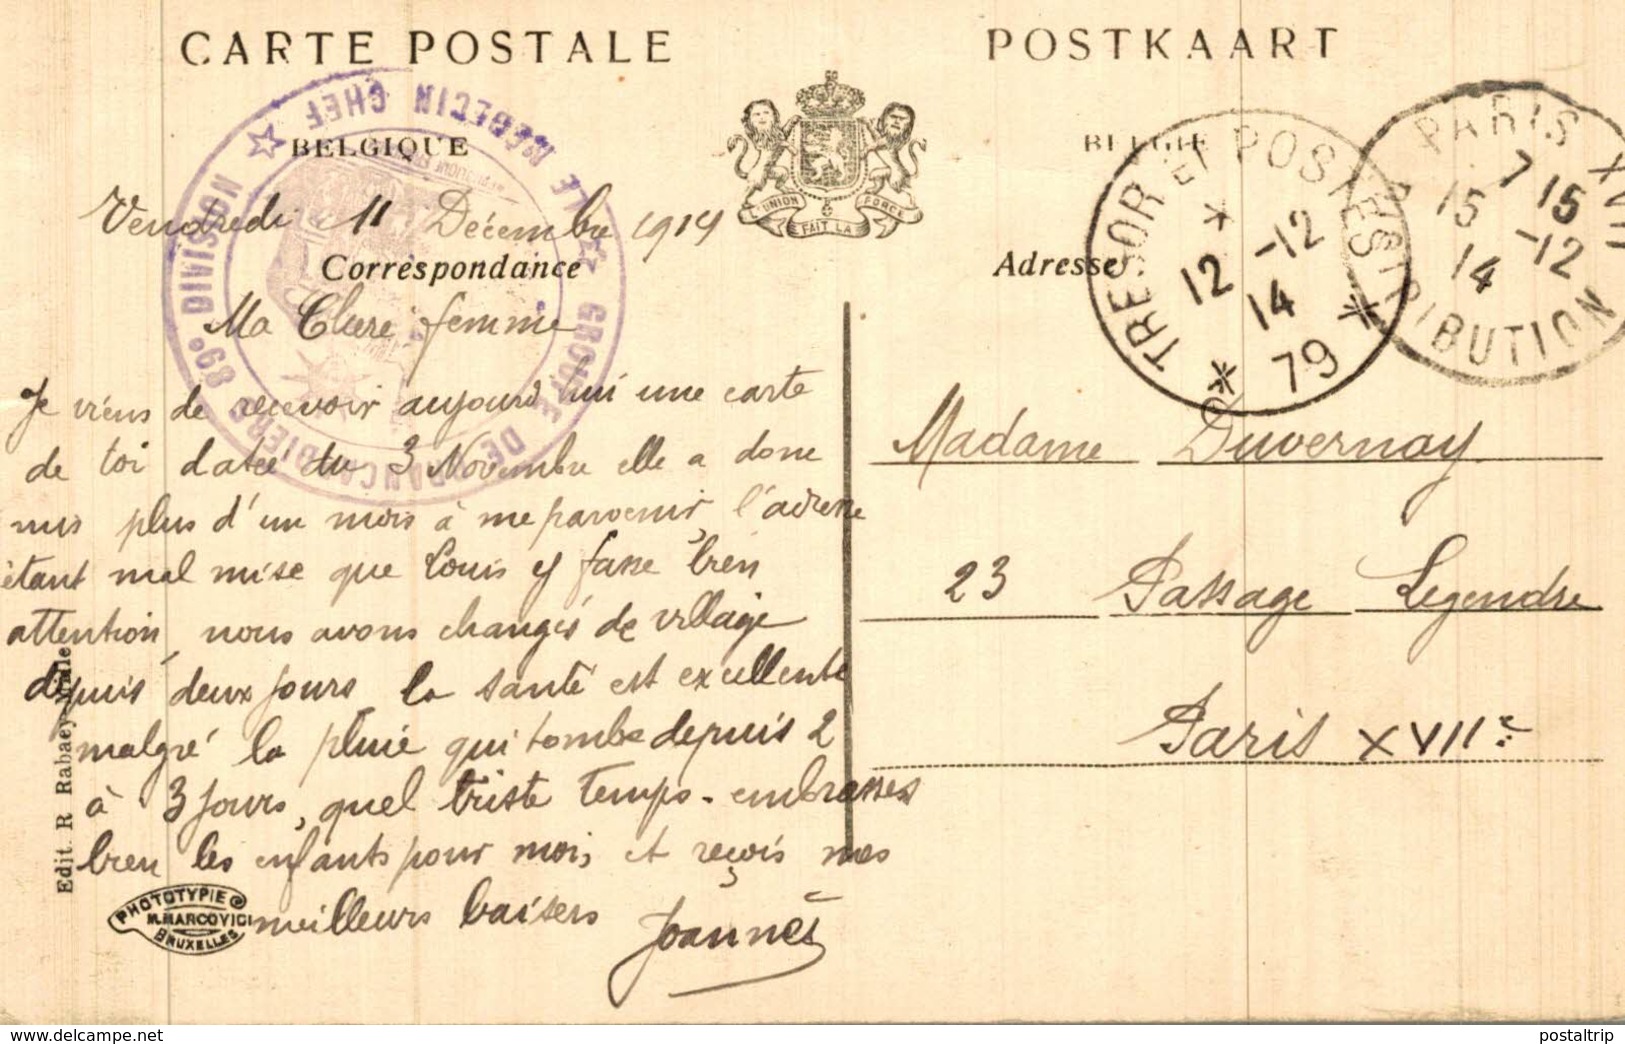 CARTE POSTALE
POSTKAART
BELGIQUE
BELGIE
L'UNION FAIT LA FORCE
Correspondance
Adresse
GROUPE DE BRANCARDIERS 89e DIVISION
MÉDECIN CHEF
TRESOR ET POSTES
12 -12
14
* 79 *
PARIS XVII
DISTRIBUTION
7 15
15 -12
14
Vendredi 11 Décembre 1914
Ma Chere femme
Je viens de recevoir aujourd'hui une carte
de toi datée du 3 Novembre elle a donc
mis plus d'un mois à me parvenir, l'adresse
étant mal mise que Louis y fasse bien
attention, nous avons changés de village
depuis deux jours, la santé est excellente
malgré la pluie qui tombe depuis 2
à 3 jours, quel triste temps. embrasses
bien les enfants pour moi, et reçois mes
meilleurs baisers Joannès
Madame Duvernay
23 Passage Legendre
Paris XVIIe
Edit. R Rabaey
PHOTOTYPIE
M. MARCOVICI
BRUXELLES
www.delcampe.net
postaltrip